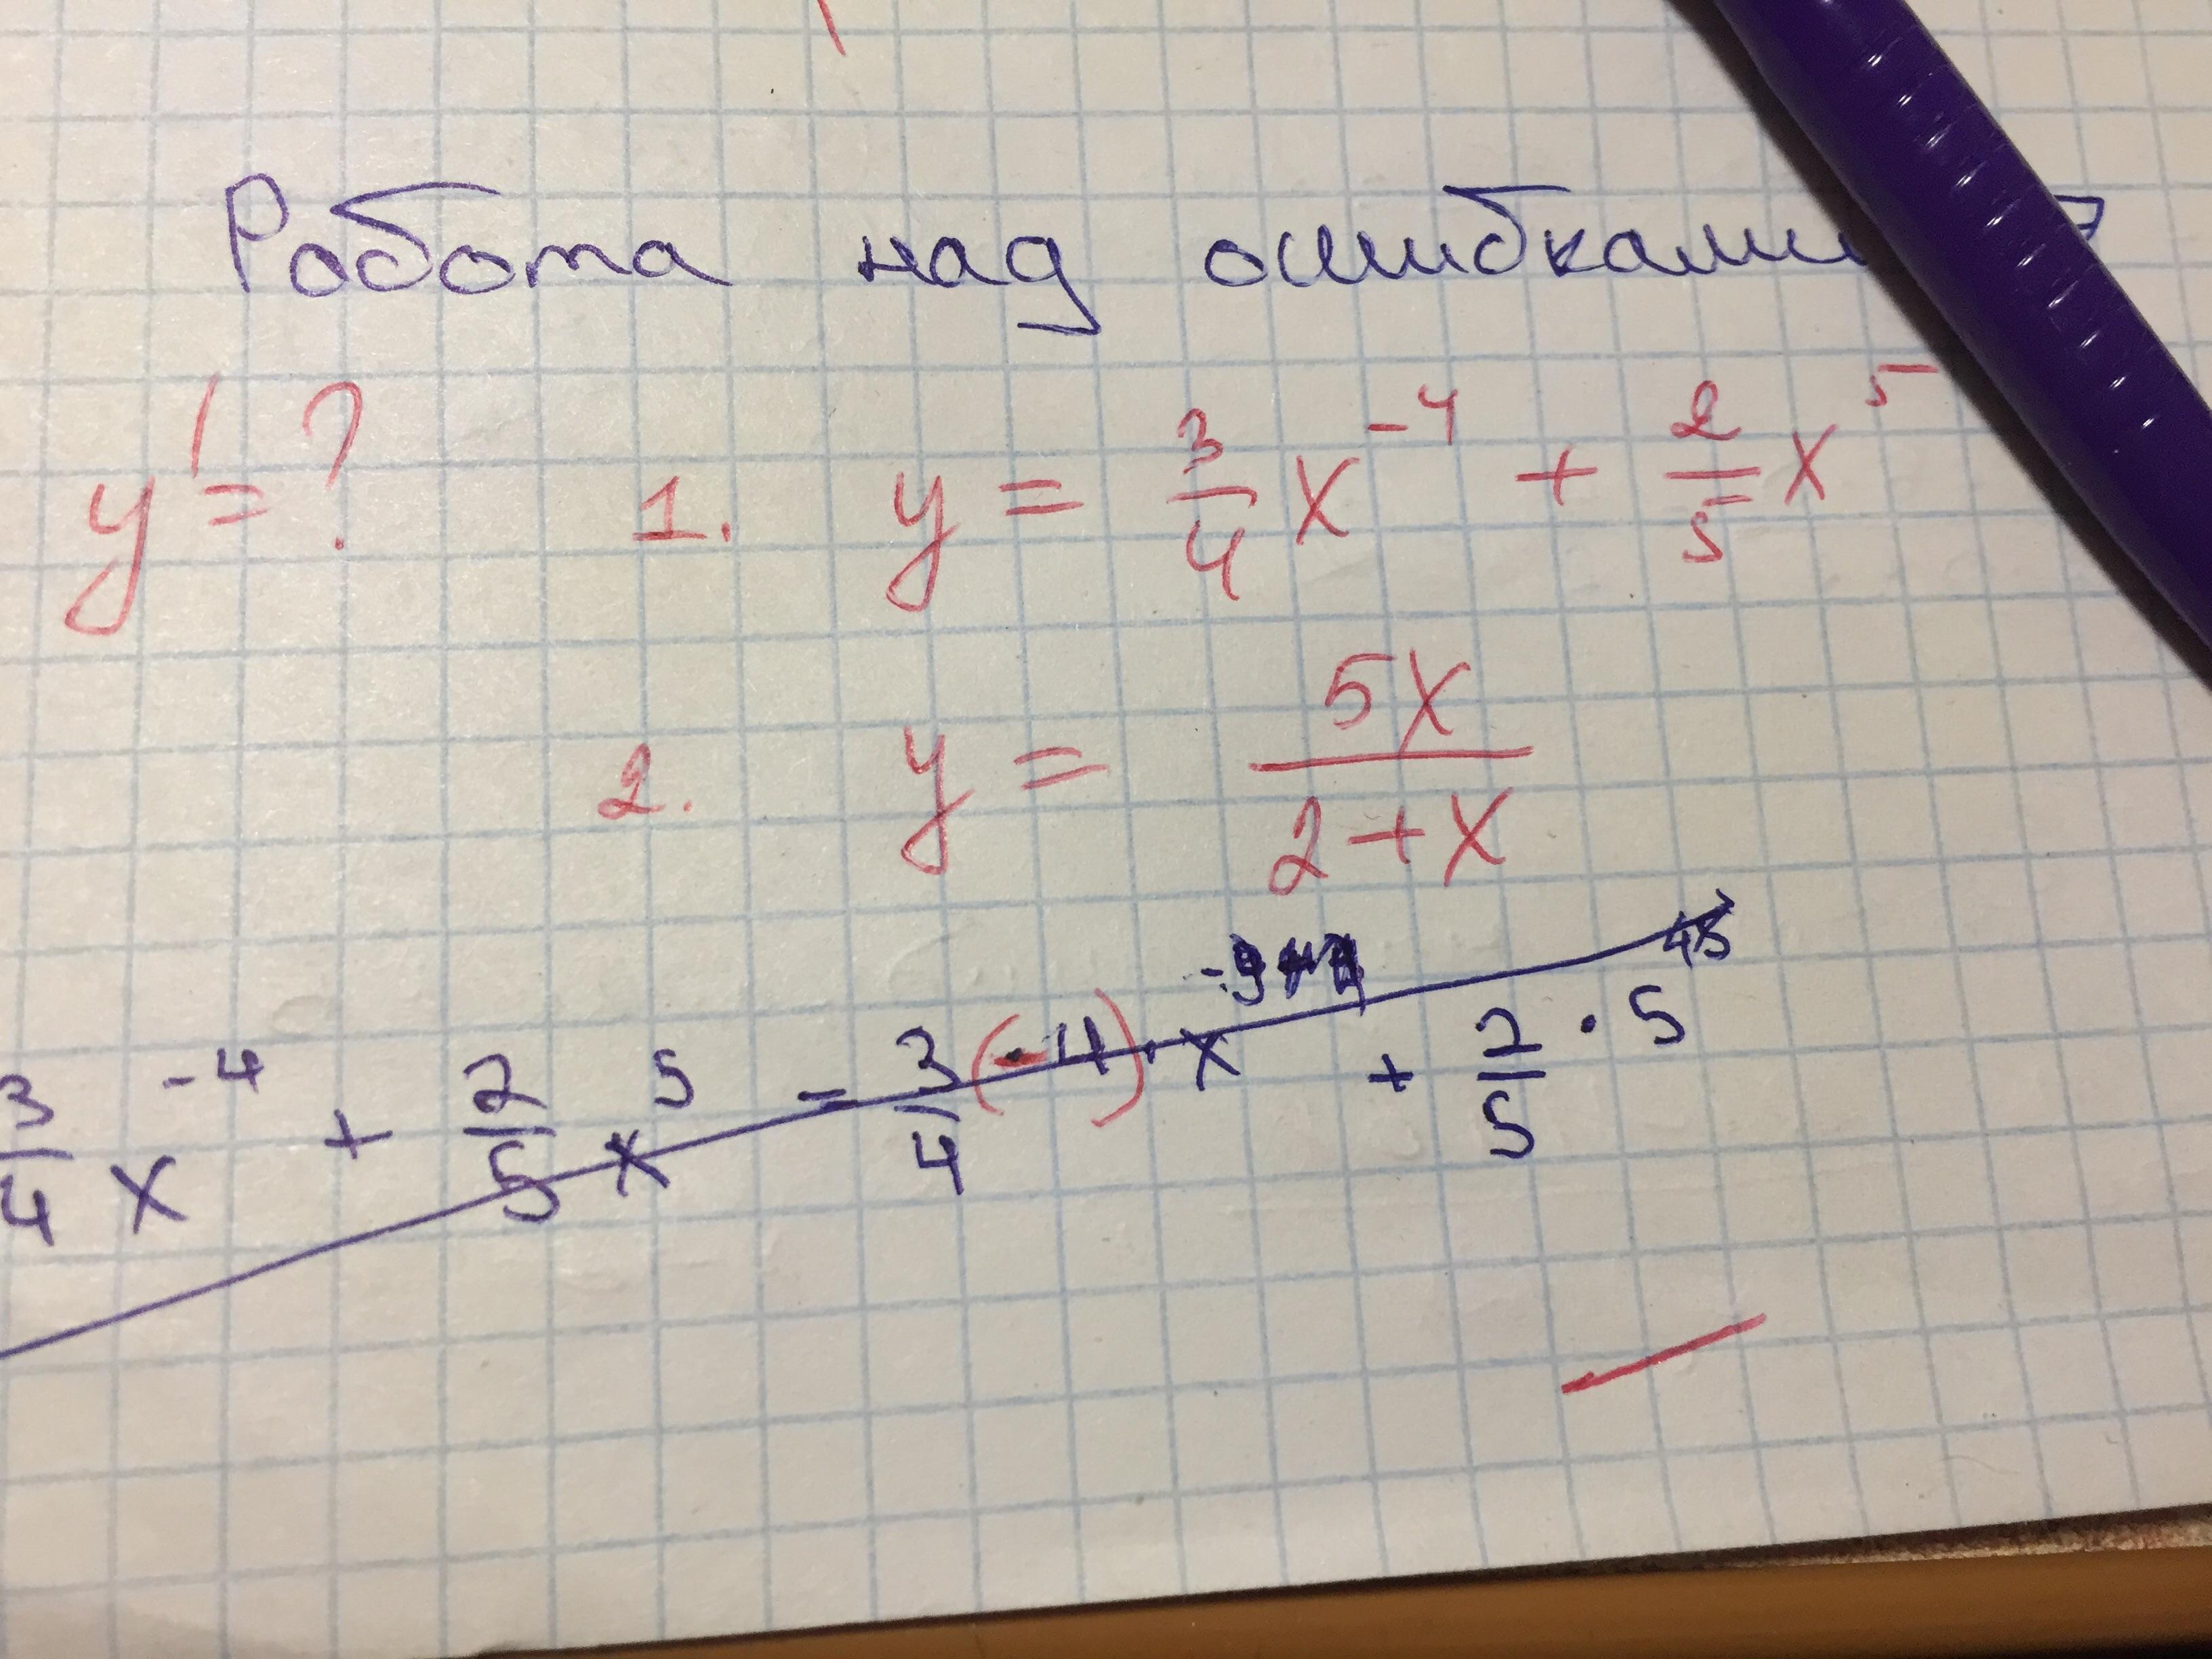 Работа над ошибками
y' = ? 1. y = 3/4 x^-4 + 2/5 x^5
2. y = 5x/(2+x)
3/4 x^-4 + 2/5 x^5 = 3/4 (-4) · x + 2/5 · 5